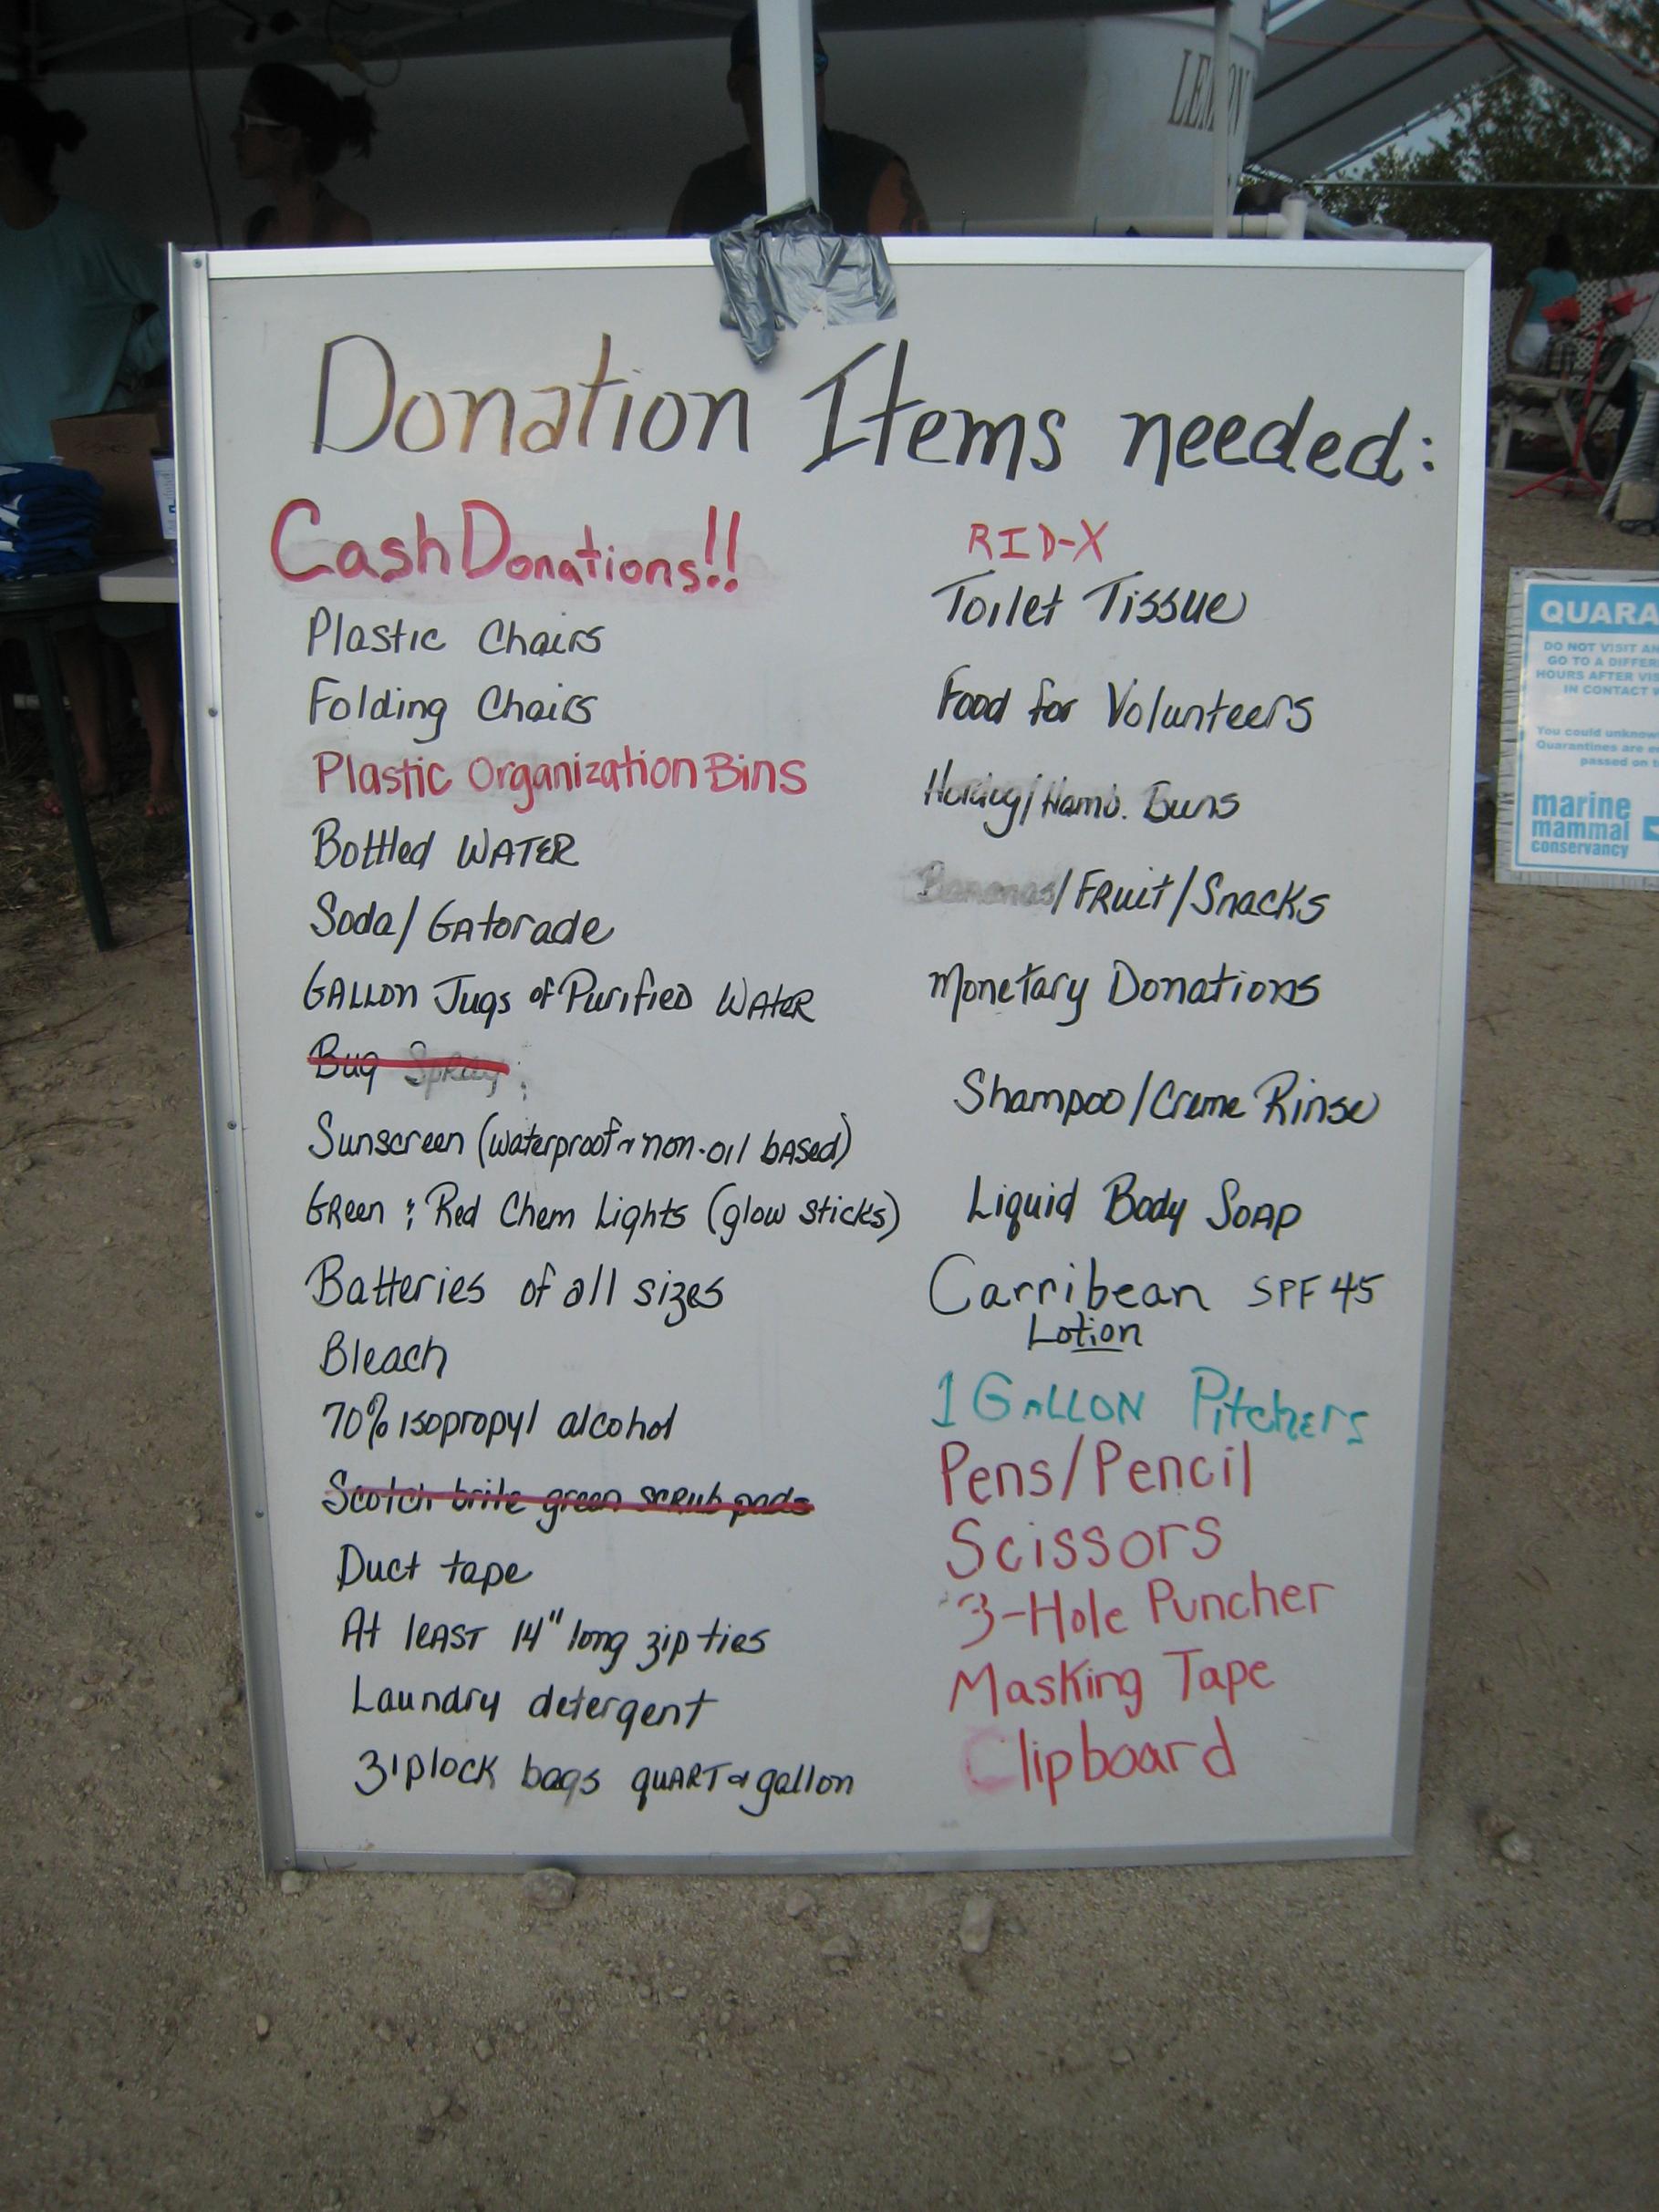 LEMON
Donation Items needed:
Cash Donations!!
Plastic Chairs
Folding Chairs
Plastic Organization Bins
Bottled WATER
Soda/Gatorade
GALLON Jugs of Purified WAteR
Bug Spray
Sunscreen (waterproof & non-oil based)
GReen & Red Chem Lights (glow sticks)
Batteries of all sizes
Bleach
70% isopropyl alcohol
Scotch brite green scRub pads
Duct tape
At leAST 14" long zip ties
Laundry detergent
ziplock bags quART & gallon
RID-X
Toilet Tissue
Food for Volunteers
Hotdog/Hamb. Buns
Bananas/FRuit/Snacks
Monetary Donations
Shampoo/Creme Rinse
Liquid Body SOAP
Carribean SPF 45
Lotion
1 GALLON Pitchers
Pens/Pencil
Scissors
3-Hole Puncher
Masking Tape
Clipboard
QUARA
DO NOT VISIT AN
GO TO A DIFFER
HOURS AFTER VIS
IN CONTACT W
You could unknow
Quarantines are e
passed on t
marine
mammal
conservancy